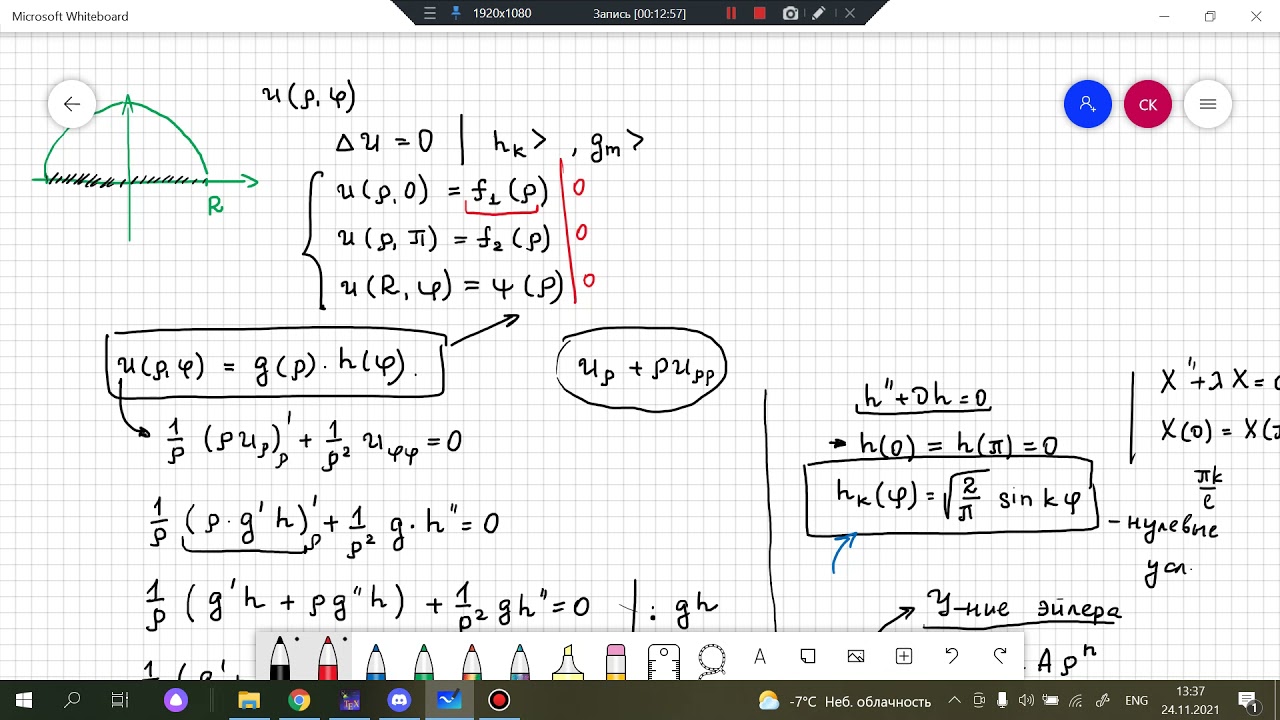 Microsoft Whiteboard
1920x1080
Запись [00:12:57]
CK
R
u(ρ, φ)
Δu = 0 | h_k> , g_m>
u(ρ, 0) = f₁(ρ) | 0
u(ρ, π) = f₂(ρ) | 0
u(R, φ) = ψ(ρ) | 0
u(ρ, φ) = g(ρ) · h(φ).
u_ρ + ρu_ρρ
1/ρ (ρu_ρ)'_ρ + 1/ρ² u_φφ = 0
1/ρ (ρ · g'h)'_ρ + 1/ρ² g · h'' = 0
1/ρ (g'h + ρg''h) + 1/ρ² gh'' = 0 | : gh
h'' + νh = 0
h(0) = h(π) = 0
h_k(φ) = √(2/π) sin kφ
- нулевые
усл.
X'' + λX = 0
X(0) = X(
πk/l
У-ние эйлера
Aρⁿ
A
-7°C Неб. облачность
ENG
13:37
24.11.2021
1